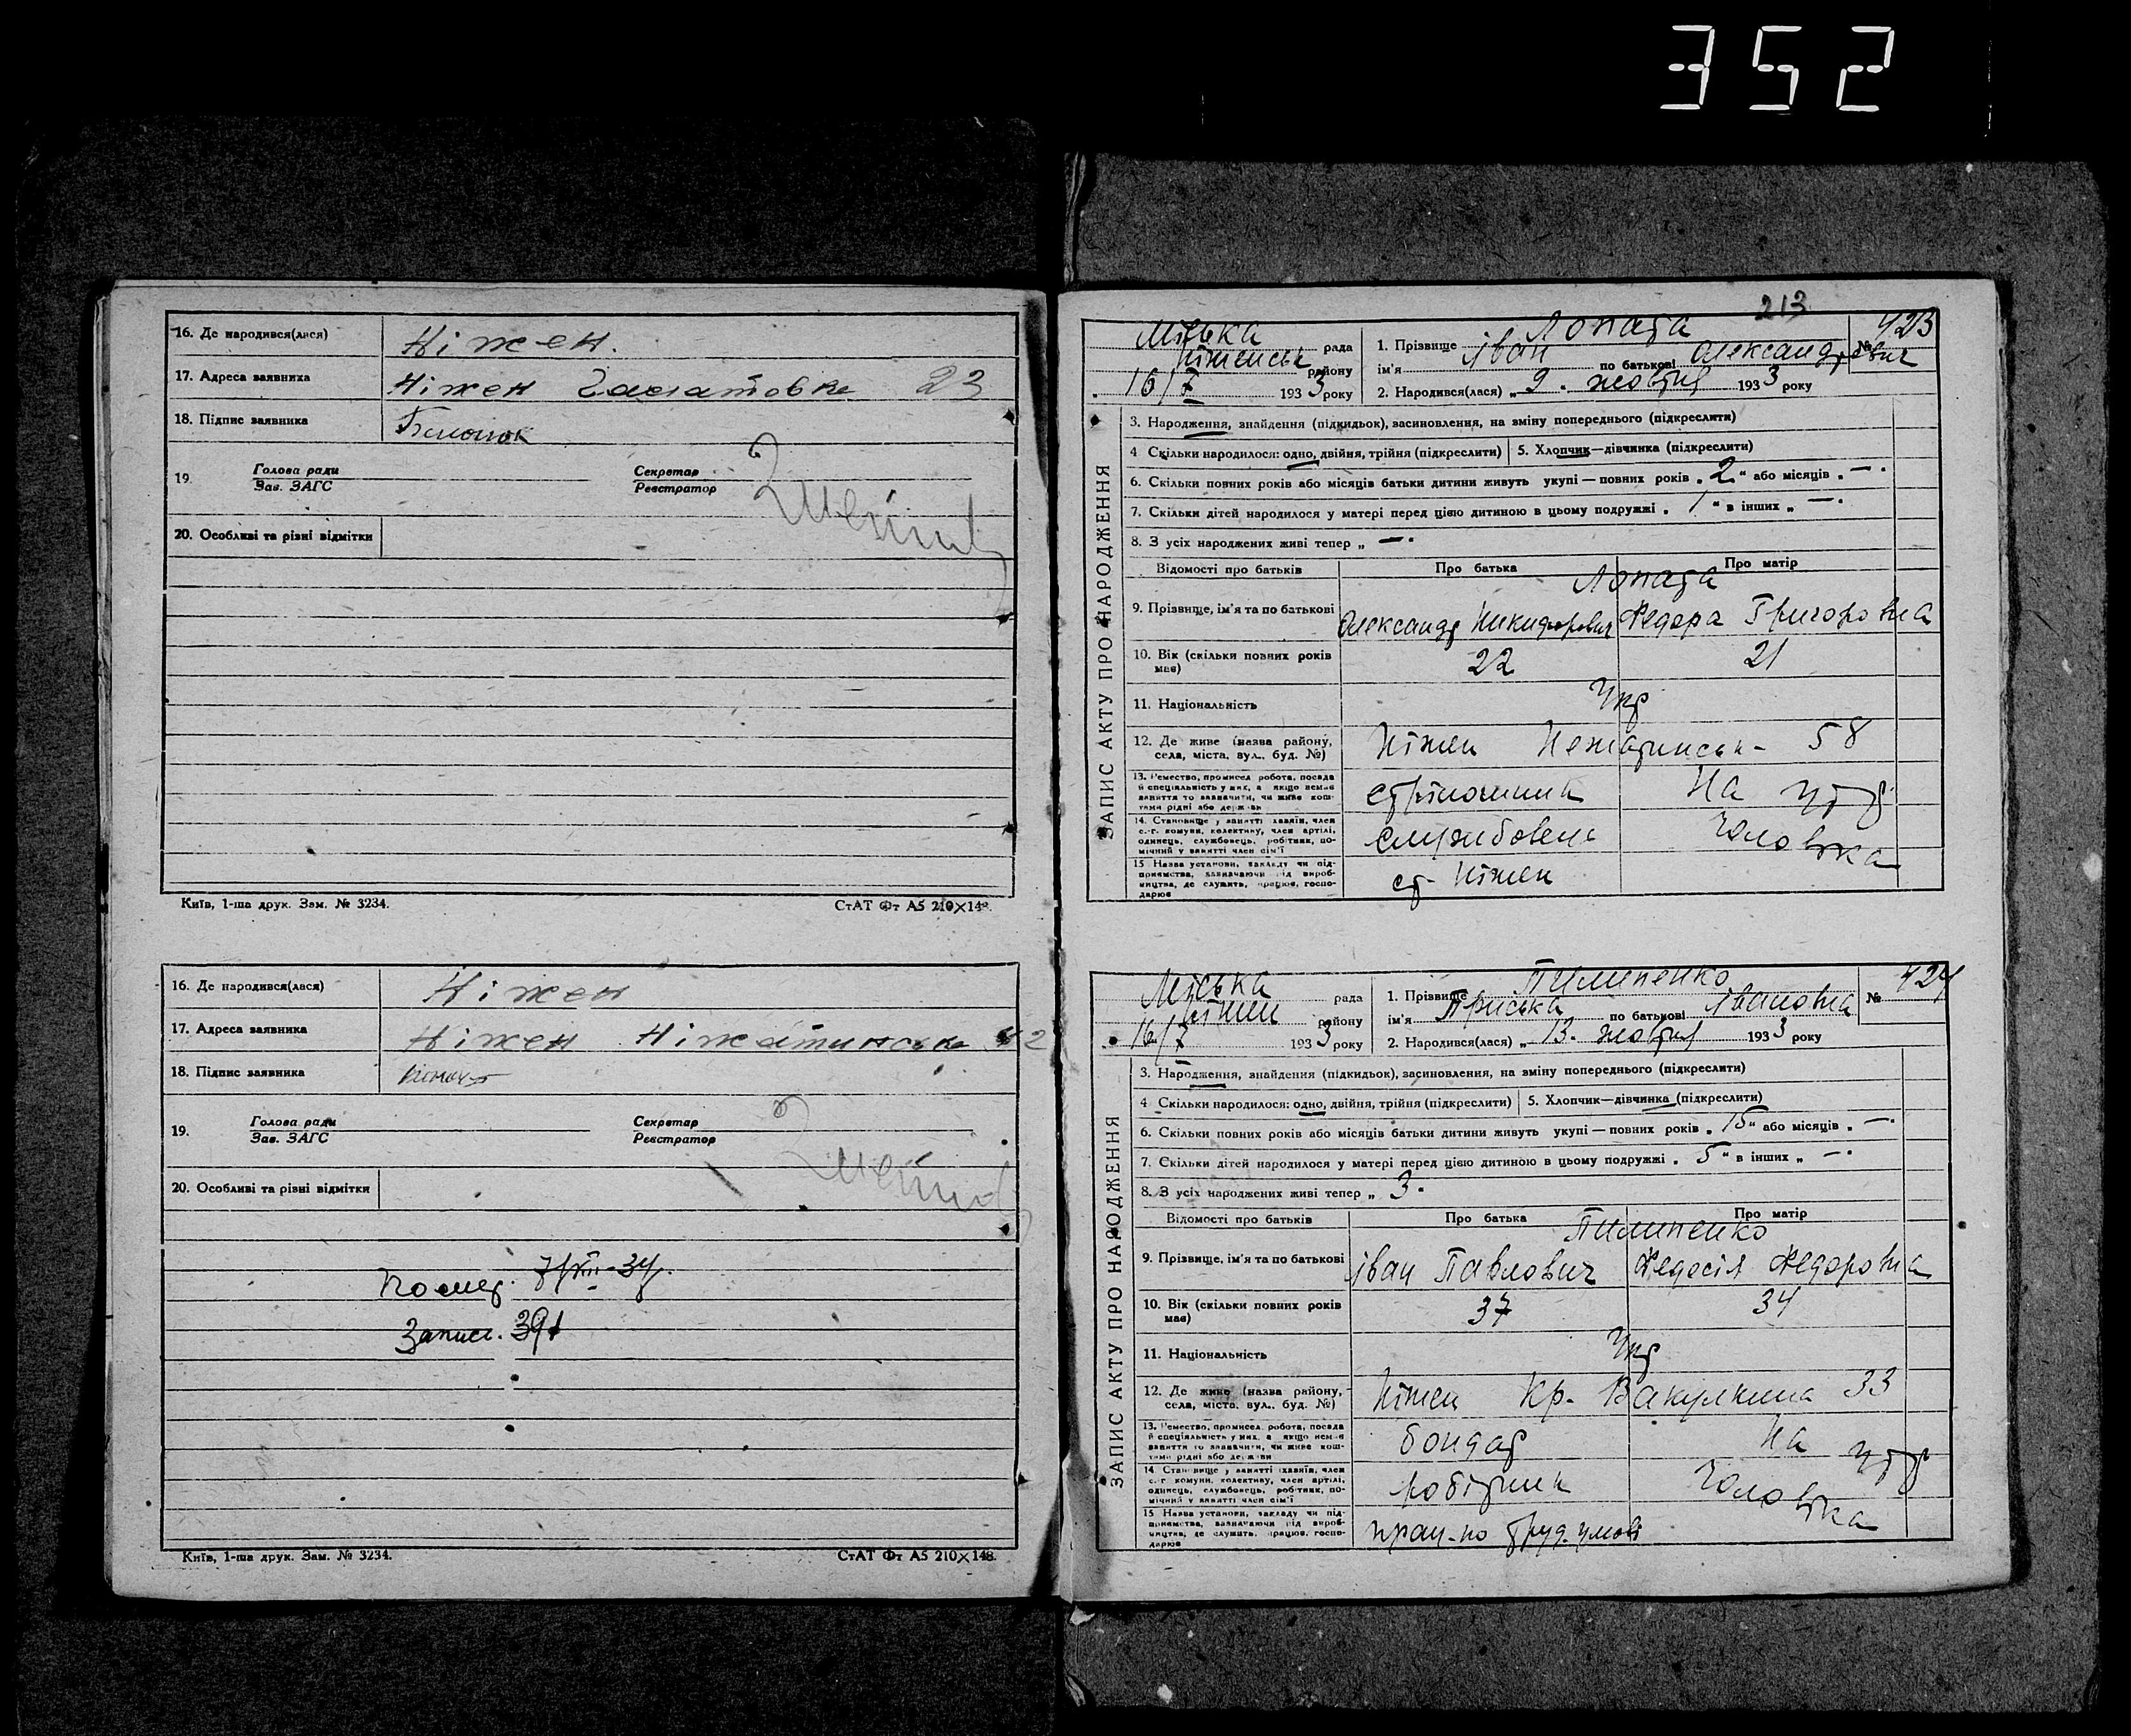 352
16. Де народився(лася) Ніжен.
17. Адреса заявника Ніжен 23
18. Підпис заявника
19. Голова ради
Зав. ЗАГС
Секретар
Реєстратор
20. Особливі та різні відмітки
Київ, 1-ша друк. Зам. № 3234.
СтАТ Фт А5 210×148.
16. Де народився(лася) Ніжен
17. Адреса заявника Ніжен Ніжатинська
18. Підпис заявника
19. Голова ради
Зав. ЗАГС
Секретар
Реєстратор
20. Особливі та різні відмітки
Помер. 7/XII-34.
Запис. 391
Київ, 1-ша друк. Зам. № 3234.
СтАТ Фт А5 210×148.
213
ЗАПИС АКТУ ПРО НАРОДЖЕННЯ
Міська рада
Ніженськ району
16/Х 1933 року
1. Прізвище Лопата
№ 423
ім'я Іван по батькові Олександрович
2. Народився(лася) „ 9 . жовтня 1933 року
3. Народження, знайдення (підкидьок), засиновлення, на зміну попереднього (підкреслити)
4 Скільки народилося: одно, двійня, трійня (підкреслити) 5. Хлопчик—дівчинка (підкреслити)
6. Скільки повних років або місяців батьки дитини живуть укупі — повних років „ 2 " або місяців „ — .
7. Скільки дітей народилося у матері перед цією дитиною в цьому подружжі „ 1 " в інших „ — .
8. З усіх народжених живі тепер „ — .
Відомості про батьків Про батька Про матір
Лопата
9. Прізвище, ім'я та по батькові Олександр Никифорович Федора Григоровна
10. Вік (скільки повних років має) 22 21
11. Національність Укр
12. Де живе (назва району, села, міста, вул., буд. №) Ніжен Нежатинськ- 58
13. Ремество, промисел робота, посада й спеціяльність у них, а якщо немає заняття то зазначити, чи живе коштами рідні або держави стрілочник На утр
14. Становище у занятті хазяїн, член с.-г. комуни, колективу, член артілі, одинець, службовець, робітник, помічний у занятті член сім'ї службовець Чоловіка
15 Назва установи, закладу чи підприємства, зазначаючи рід виробництва, де служить, працює, господарює ст. Ніжен
ЗАПИС АКТУ ПРО НАРОДЖЕННЯ
Міська рада
Ніжен району
16/Х 1933 року
1. Прізвище Пилипенко
№ 424
ім'я Пріська по батькові Івановна
2. Народився(лася) „ 13. жовтня 1933 року
3. Народження, знайдення (підкидьок), засиновлення, на зміну попереднього (підкреслити)
4 Скільки народилося: одно, двійня, трійня (підкреслити) 5. Хлопчик—дівчинка (підкреслити)
6. Скільки повних років або місяців батьки дитини живуть укупі — повних років „ 15 " або місяців „ — .
7. Скільки дітей народилося у матері перед цією дитиною в цьому подружжі „ 5 " в інших „ — .
8. З усіх народжених живі тепер „ 3 .
Відомості про батьків Про батька Про матір
Пилипенко
9. Прізвище, ім'я та по батькові Іван Павлович Федосія Федоровна
10. Вік (скільки повних років має) 37 34
11. Національність Укр
12. Де живе (назва району, села, міста, вул., буд. №) Ніжен Кр. Вакулкина 33
13. Ремество, промисел робота, посада й спеціяльність у них, а якщо немає заняття то зазначити, чи живе коштами рідні або держави бондар На утр
14. Становище у занятті хазяїн, член с.-г. комуни, колективу, член артілі, одинець, службовець, робітник, помічний у занятті член сім'ї робітник Чоловіка
15 Назва установи, закладу чи підприємства, зазначаючи рід виробництва, де служить, працює, господарює прац. по труд. умові